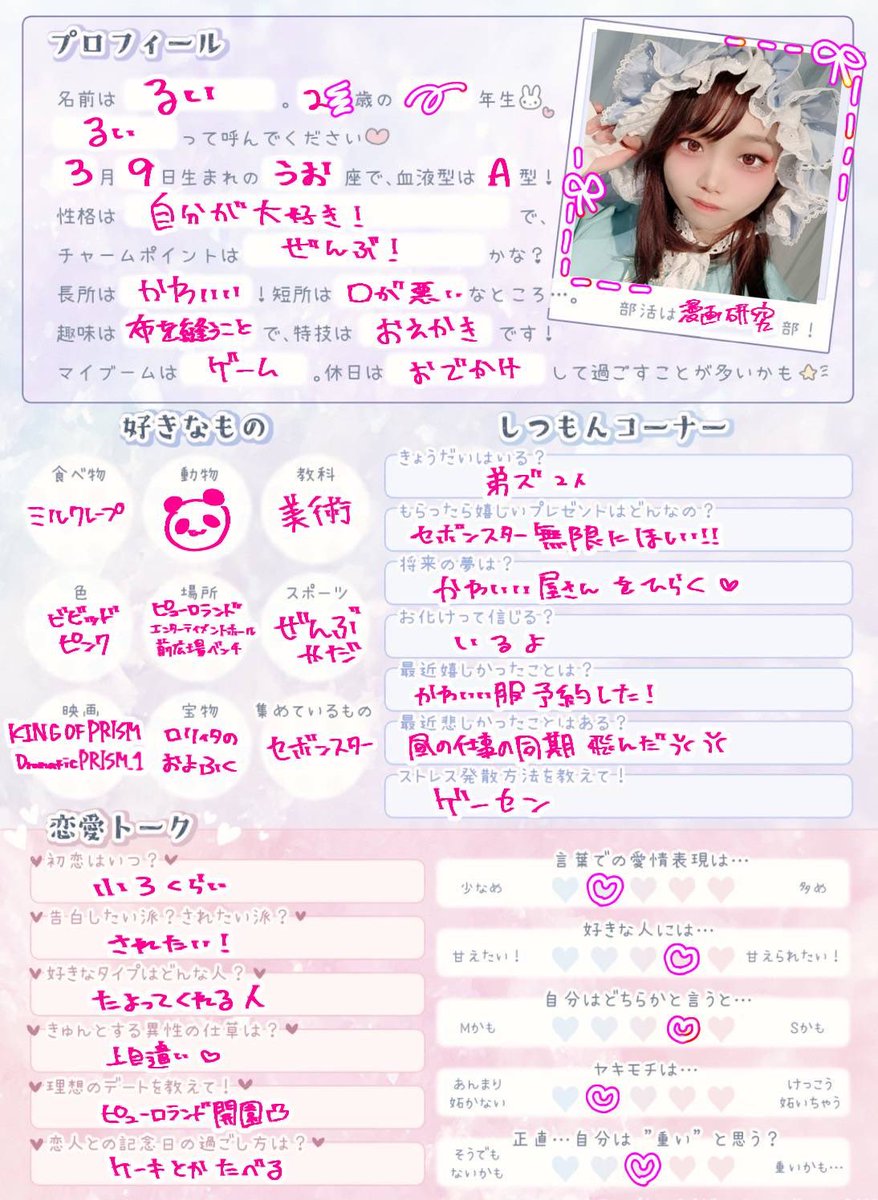 プロフィール
名前は るい 。2歳の 年生
るい って呼んでください
3月9日生まれの うお 座で、血液型は A 型!
性格は 自分が大好き! で、
チャームポイントは ぜんぶ! かな?
長所は かわいい !短所は 口が悪い なところ…。
部活は 漫画研究 部!
趣味は 布を縫うこと で、特技は おえかき です!
マイブームは ゲーム 。休日は おでかけ して過ごすことが多いかも
好きなもの
食べ物
ミルクレープ
動物
教科
美術
色
ビビッド
ピンク
場所
ピューロランド
エンターテイメントホール
前広場ベンチ
スポーツ
ぜんぶ
やだ
映画
KING OF PRISM
Dramatic PRISM.1
宝物
ロリィタの
およふく
集めているもの
セボンスター
しつもんコーナー
きょうだいはいる?
弟ズ2人
もらったら嬉しいプレゼントはどんなの?
セボンスター無限にほしい!!
将来の夢は?
かわいい屋さんをひらく♡
お化けって信じる?
いるよ
最近嬉しかったことは?
かわいい服予約した!
最近悲しかったことはある?
昼の仕事の同期飛んだ
ストレス発散方法を教えて!
ゲーセン
恋愛トーク
初恋はいつ?
小3くらい
告白したい派?されたい派?
されたい!
好きなタイプはどんな人?
たよってくれる人
きゅんとする異性の仕草は?
上目遣い♡
理想のデートを教えて!
ピューロランド開園凸
恋人との記念日の過ごし方は?
ケーキとかたべる
言葉での愛情表現は…
少なめ 多め
好きな人には…
甘えたい! 甘えられたい!
自分はどちらかと言うと…
Mかも Sかも
ヤキモチは…
あんまり
妬かない
けっこう
妬いちゃう
正直…自分は"重い"と思う?
そうでも
ないかも
重いかも…